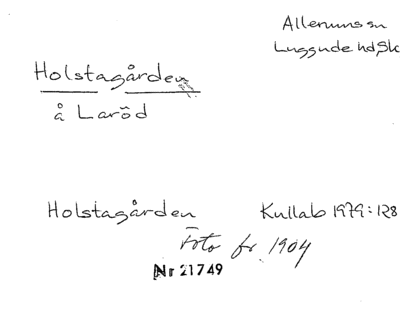 Allerums sn
Luggude hd, Sk
Holstagården
å Laröd
Holstagården Kullab 1979:128
Foto fr. 1904
Nr 21749